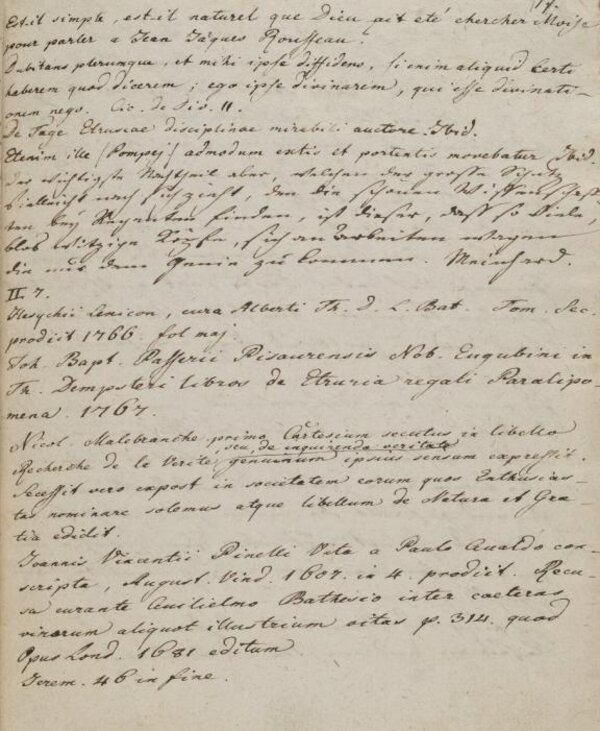 17.
Est-il simple, est-il naturel que Dieu ait eté chercher Moise
pour parler a Jean Jaques Rousseau.
Dubitans plerumque, et mihi ipse diffidens, si enim aliquid certi
haberem quod dicerem; ego ipse divinarem, qui esse divinati-
onem nego. Cic. de Div. II.
De Tage Etruscae disciplinae mirabili auctore. Ibid.
Etenim ille (Pompej) admodum extis et portentis movebatur Ibid.
Der wichtigste Nachtheil aber, welchen der große Schutz
vielleicht nach sich zieht, den die schönen Wissenschaf-
ten bey Regenten finden, ist dieser, daß so viele,
blos witzige Köpfe, sich an Arbeiten wagen
die nur dem Genie zukommen. Meinhard.
II. 7.
Hesychii Lexicon, cura Alberti Th. D. L. Bat. Tom. Sec.
prodiit 1766. fol maj.
Joh. Bapt. Passerii Pisaurensis Nob. Eugubini in
Th. Dempsteri libros de Etruria regali Paralipo-
mena. 1767.
Nicol. Malebranche primo Cartesium secutus in libello
Recherche de la Verité, seu, de inquirenda veritate genuinum ipsius sensum expressit.
Secessit vero expost in societatem eorum quos Enthusias-
tas nominare solemus atque libellum de Natura et Gra-
tia edidit.
Joannis Vincentii Pinelli Vita a Paulo Gualdo con-
scripta, August. Vind. 1607. in 4. prodiit. Recu-
sa curante Guilielmo Bathesio inter caeteras
virorum aliquot illustrium vitas p. 314. quod
Opus Lond. 1681 editum
Jerem. 46 in fine.